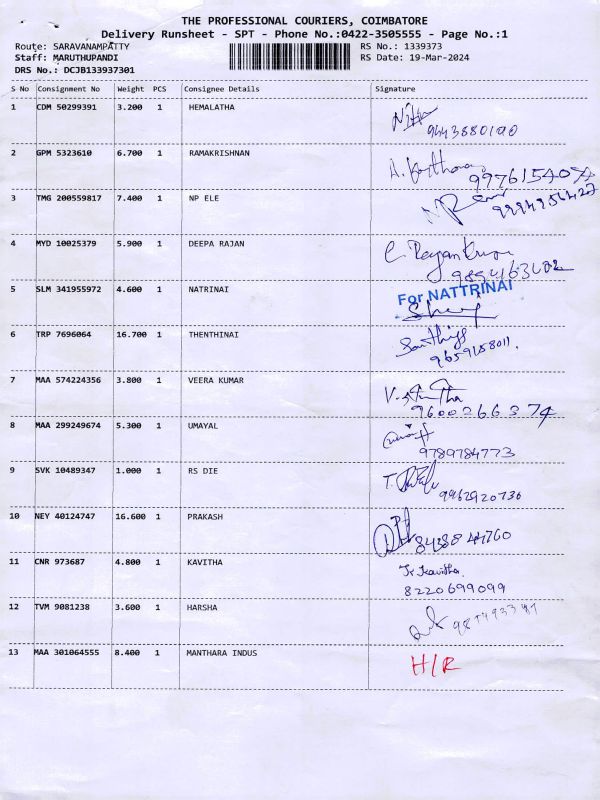 THE PROFESSIONAL COURIERS, COIMBATORE
Delivery Runsheet - SPT - Phone No.:0422-3505555 - Page No.:1
Route: SARAVANAMPATTY RS No.: 1339373
Staff: MARUTHUPANDI RS Date: 19-Mar-2024
DRS No.: DCJB133937301
S No Consignment No Weight PCS Consignee Details Signature
1 CDM 50299391 3.200 1 HEMALATHA
2 GPM 5323610 6.700 1 RAMAKRISHNAN
9976154074
3 TMG 200559817 7.400 1 NP ELE
4 MYD 10025379 5.900 1 DEEPA RAJAN
5 SLM 341955972 4.600 1 NATRINAI
For NATTRINAI
6 TRP 7696064 16.700 1 THENTHINAI
9659158011.
7 MAA 574224356 3.800 1 VEERA KUMAR
9600266374
8 MAA 299249674 5.300 1 UMAYAL
9789784773
9 SVK 10489347 1.000 1 RS DIE
9962920736
10 NEY 40124747 16.600 1 PRAKASH
11 CNR 973687 4.800 1 KAVITHA
8220699099
12 TVM 9081238 3.600 1 HARSHA
13 MAA 301064555 8.400 1 MANTHARA INDUS
H/R